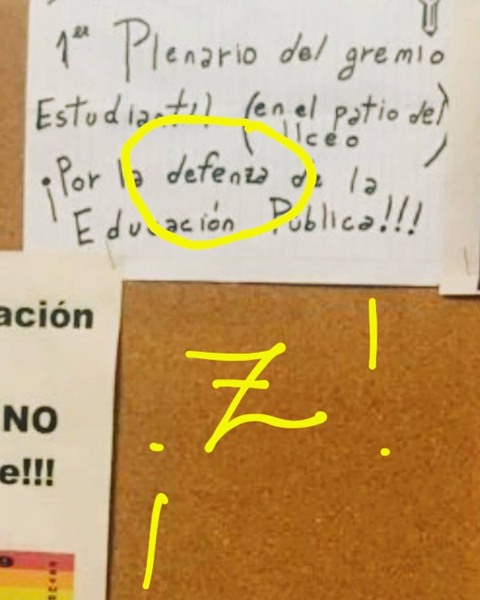 1er Plenario del gremio
Estudiantil (en el patio del
liceo)
¡Por la defenza de la
Educación Pública!!!
ación
NO
e!!!
¡Z!